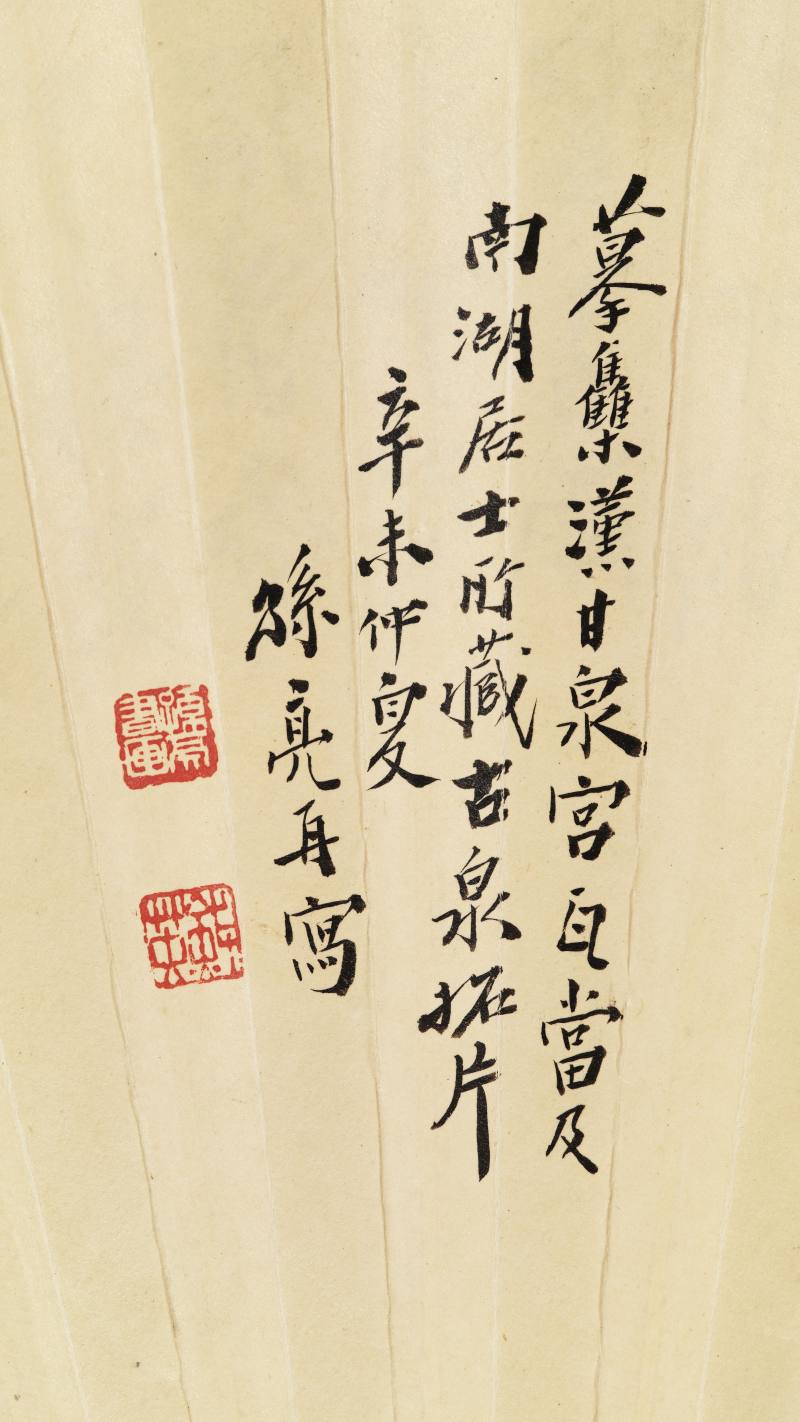 摹雧漢甘泉宮瓦當及
南湖居士所藏古泉拓片
辛未仲夏
孫亮再寫